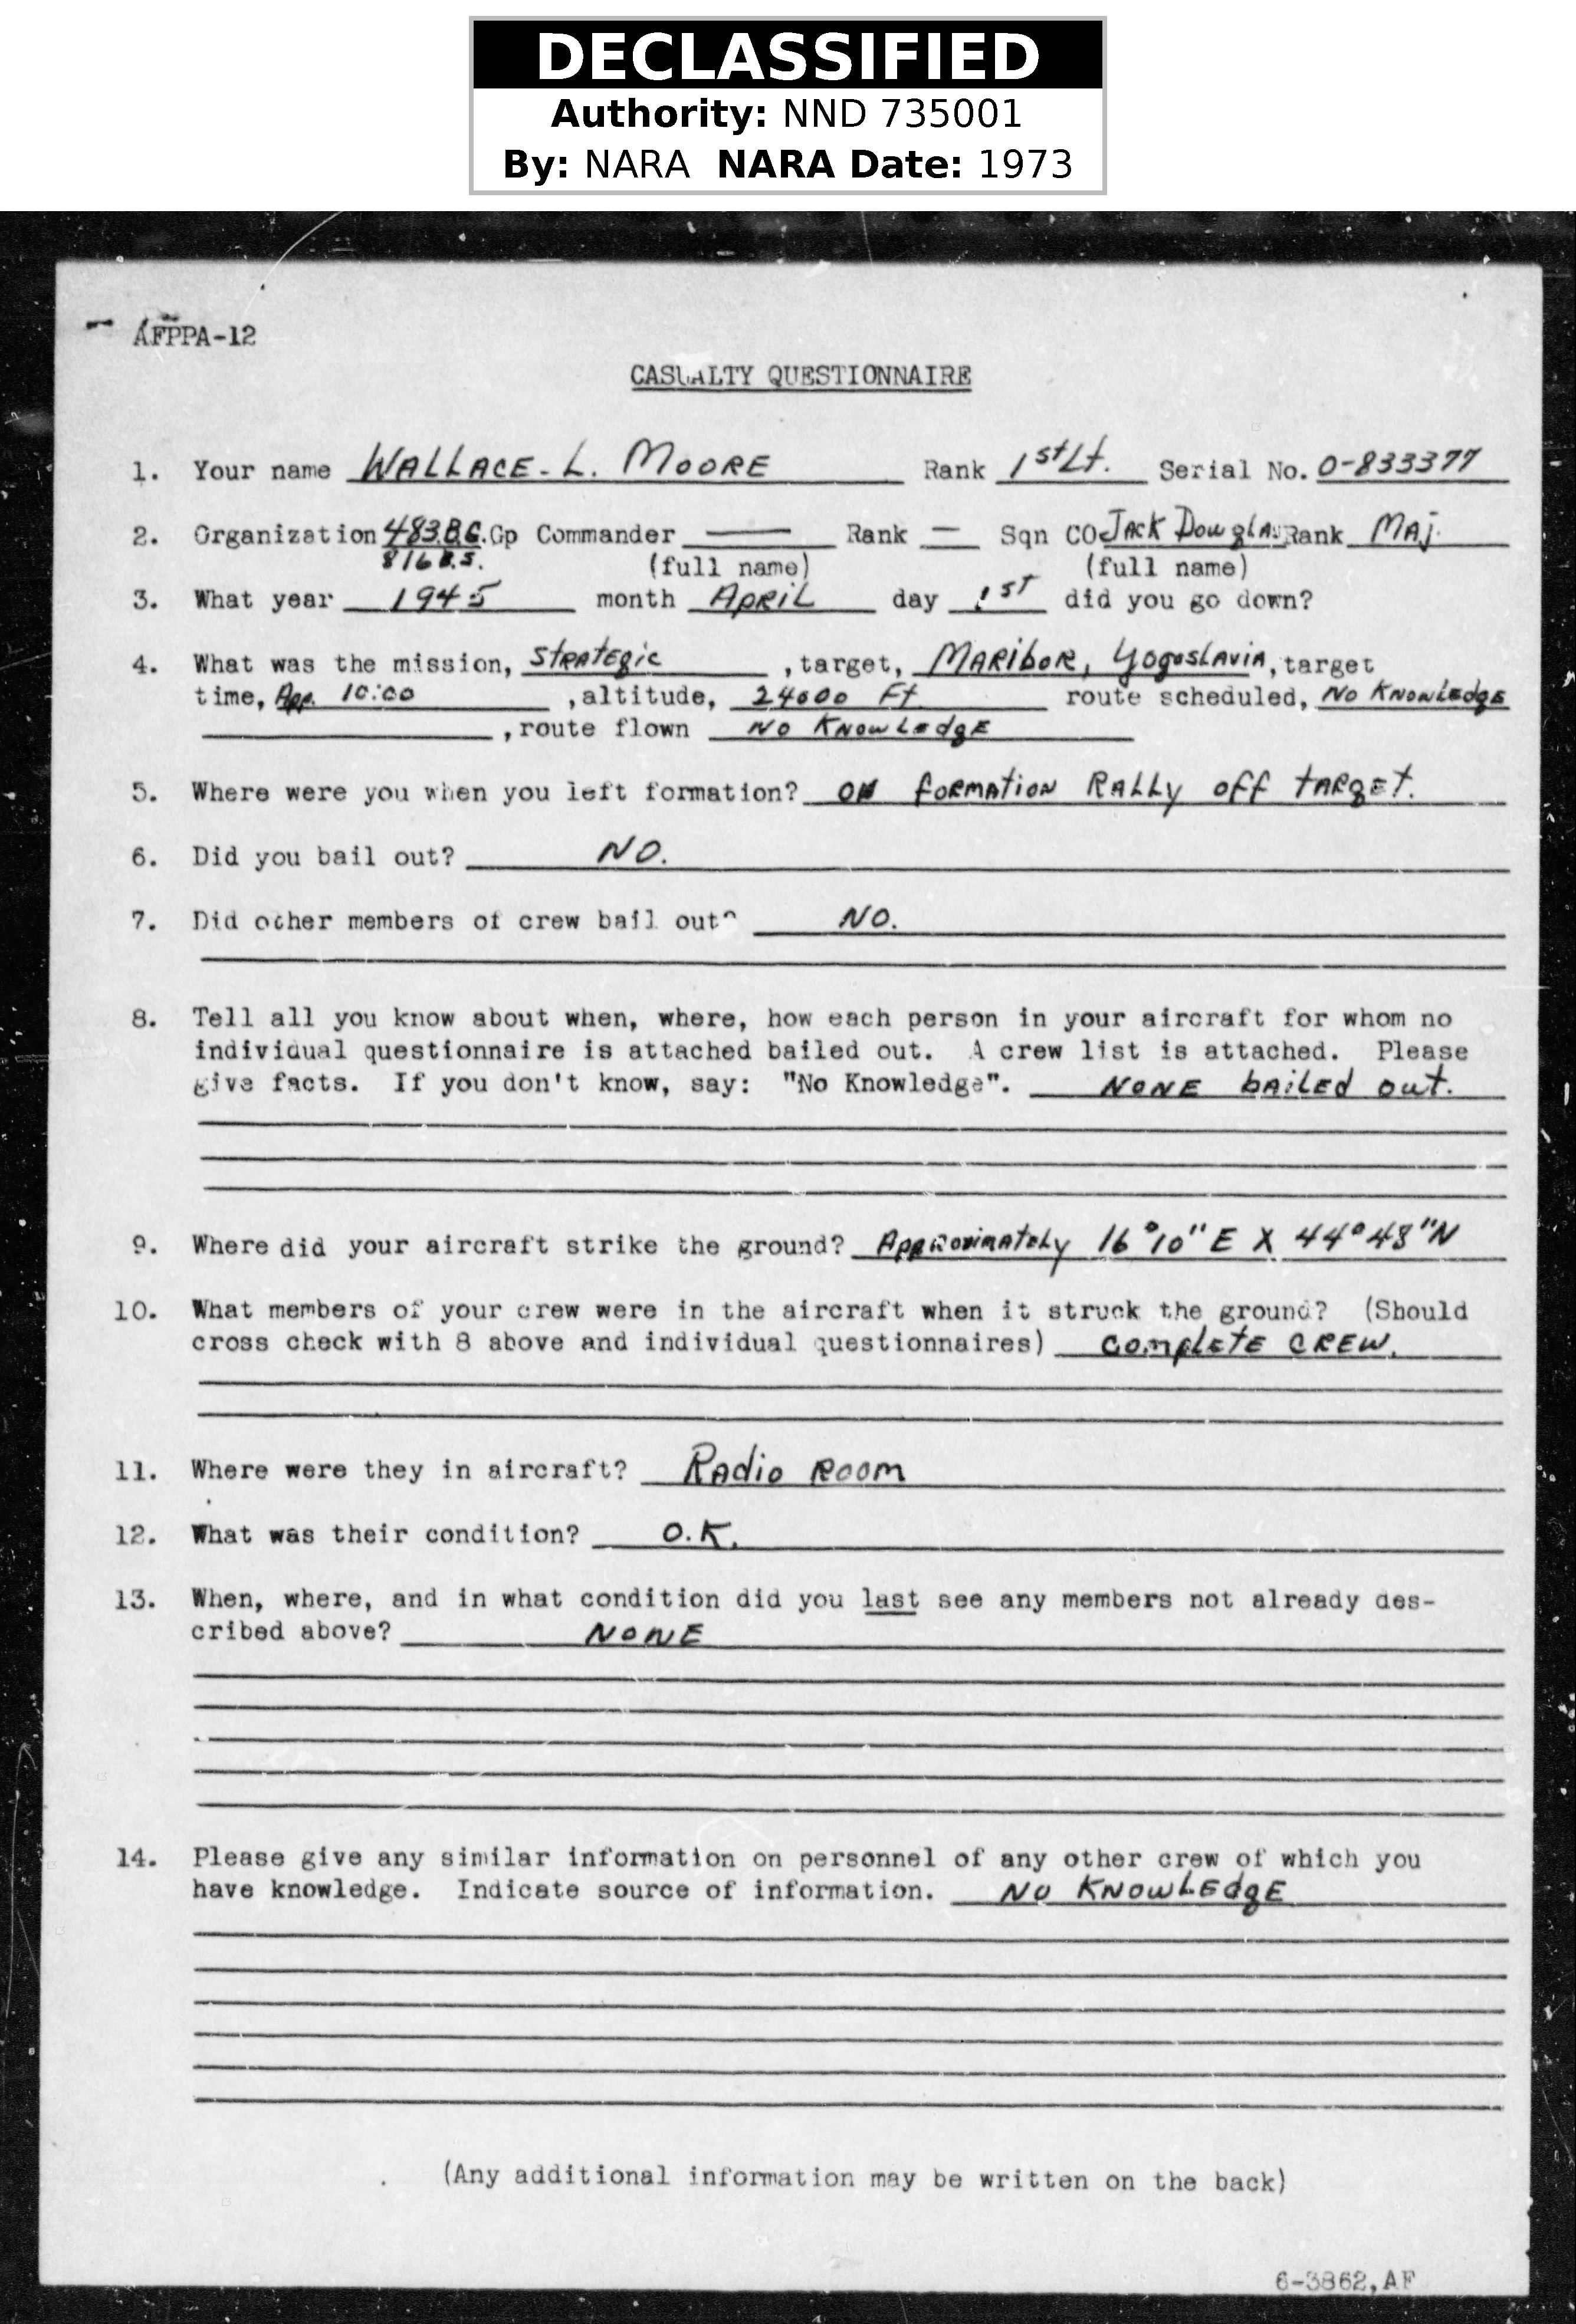 DECLASSIFIED
Authority: NND 735001
By: NARA NARA Date: 1973
AFPPA-12
CASUALTY QUESTIONNAIRE
1. Your name WALLACE. L. MOORE Rank 1st Lt. Serial No. 0-833377
2. Organization 483.B.G. Gp Commander — Rank — Sqn CO Jack Douglas Rank Maj.
816 B.S. (full name) (full name)
3. What year 1945 month April day 1st did you go down?
4. What was the mission, Strategic , target, Maribor, Yogoslavia, target
time, App. 10:00 , altitude, 24000 Ft. route scheduled, No Knowledge
, route flown No Knowledge
5. Where were you when you left formation? on formation Rally off target.
6. Did you bail out? NO.
7. Did other members of crew bail out? NO.
8. Tell all you know about when, where, how each person in your aircraft for whom no
individual questionnaire is attached bailed out. A crew list is attached. Please
give facts. If you don't know, say: "No Knowledge". None bailed out.
9. Where did your aircraft strike the ground? Approximately 16°10" E X 44°48" N
10. What members of your crew were in the aircraft when it struck the ground? (Should
cross check with 8 above and individual questionnaires) Complete crew.
11. Where were they in aircraft? Radio Room
12. What was their condition? O.K.
13. When, where, and in what condition did you last see any members not already des-
cribed above? None
14. Please give any similar information on personnel of any other crew of which you
have knowledge. Indicate source of information. No Knowledge
(Any additional information may be written on the back)
6-3862, AF